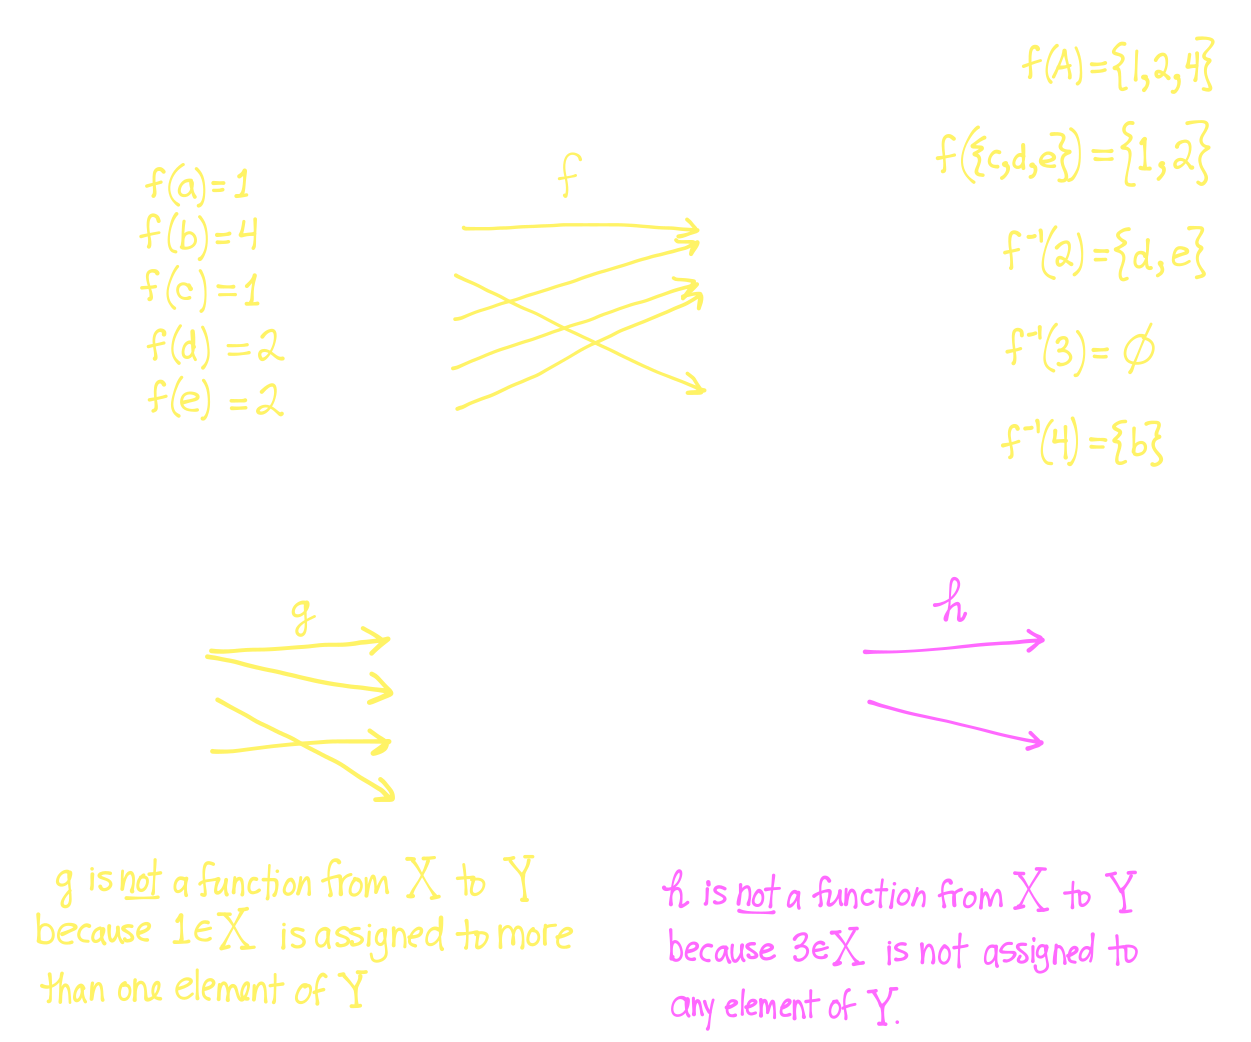 f(A) = {1, 2, 4}
f({c, d, e}) = {1, 2}
f⁻¹(2) = {d, e}
f⁻¹(3) = ∅
f⁻¹(4) = {b}
f(a) = 1
f(b) = 4
f(c) = 1
f(d) = 2
f(e) = 2
f
g
g is not a function from X to Y
because 1∈X is assigned to more
than one element of Y
h
h is not a function from X to Y
because 3∈X is not assigned to
any element of Y.